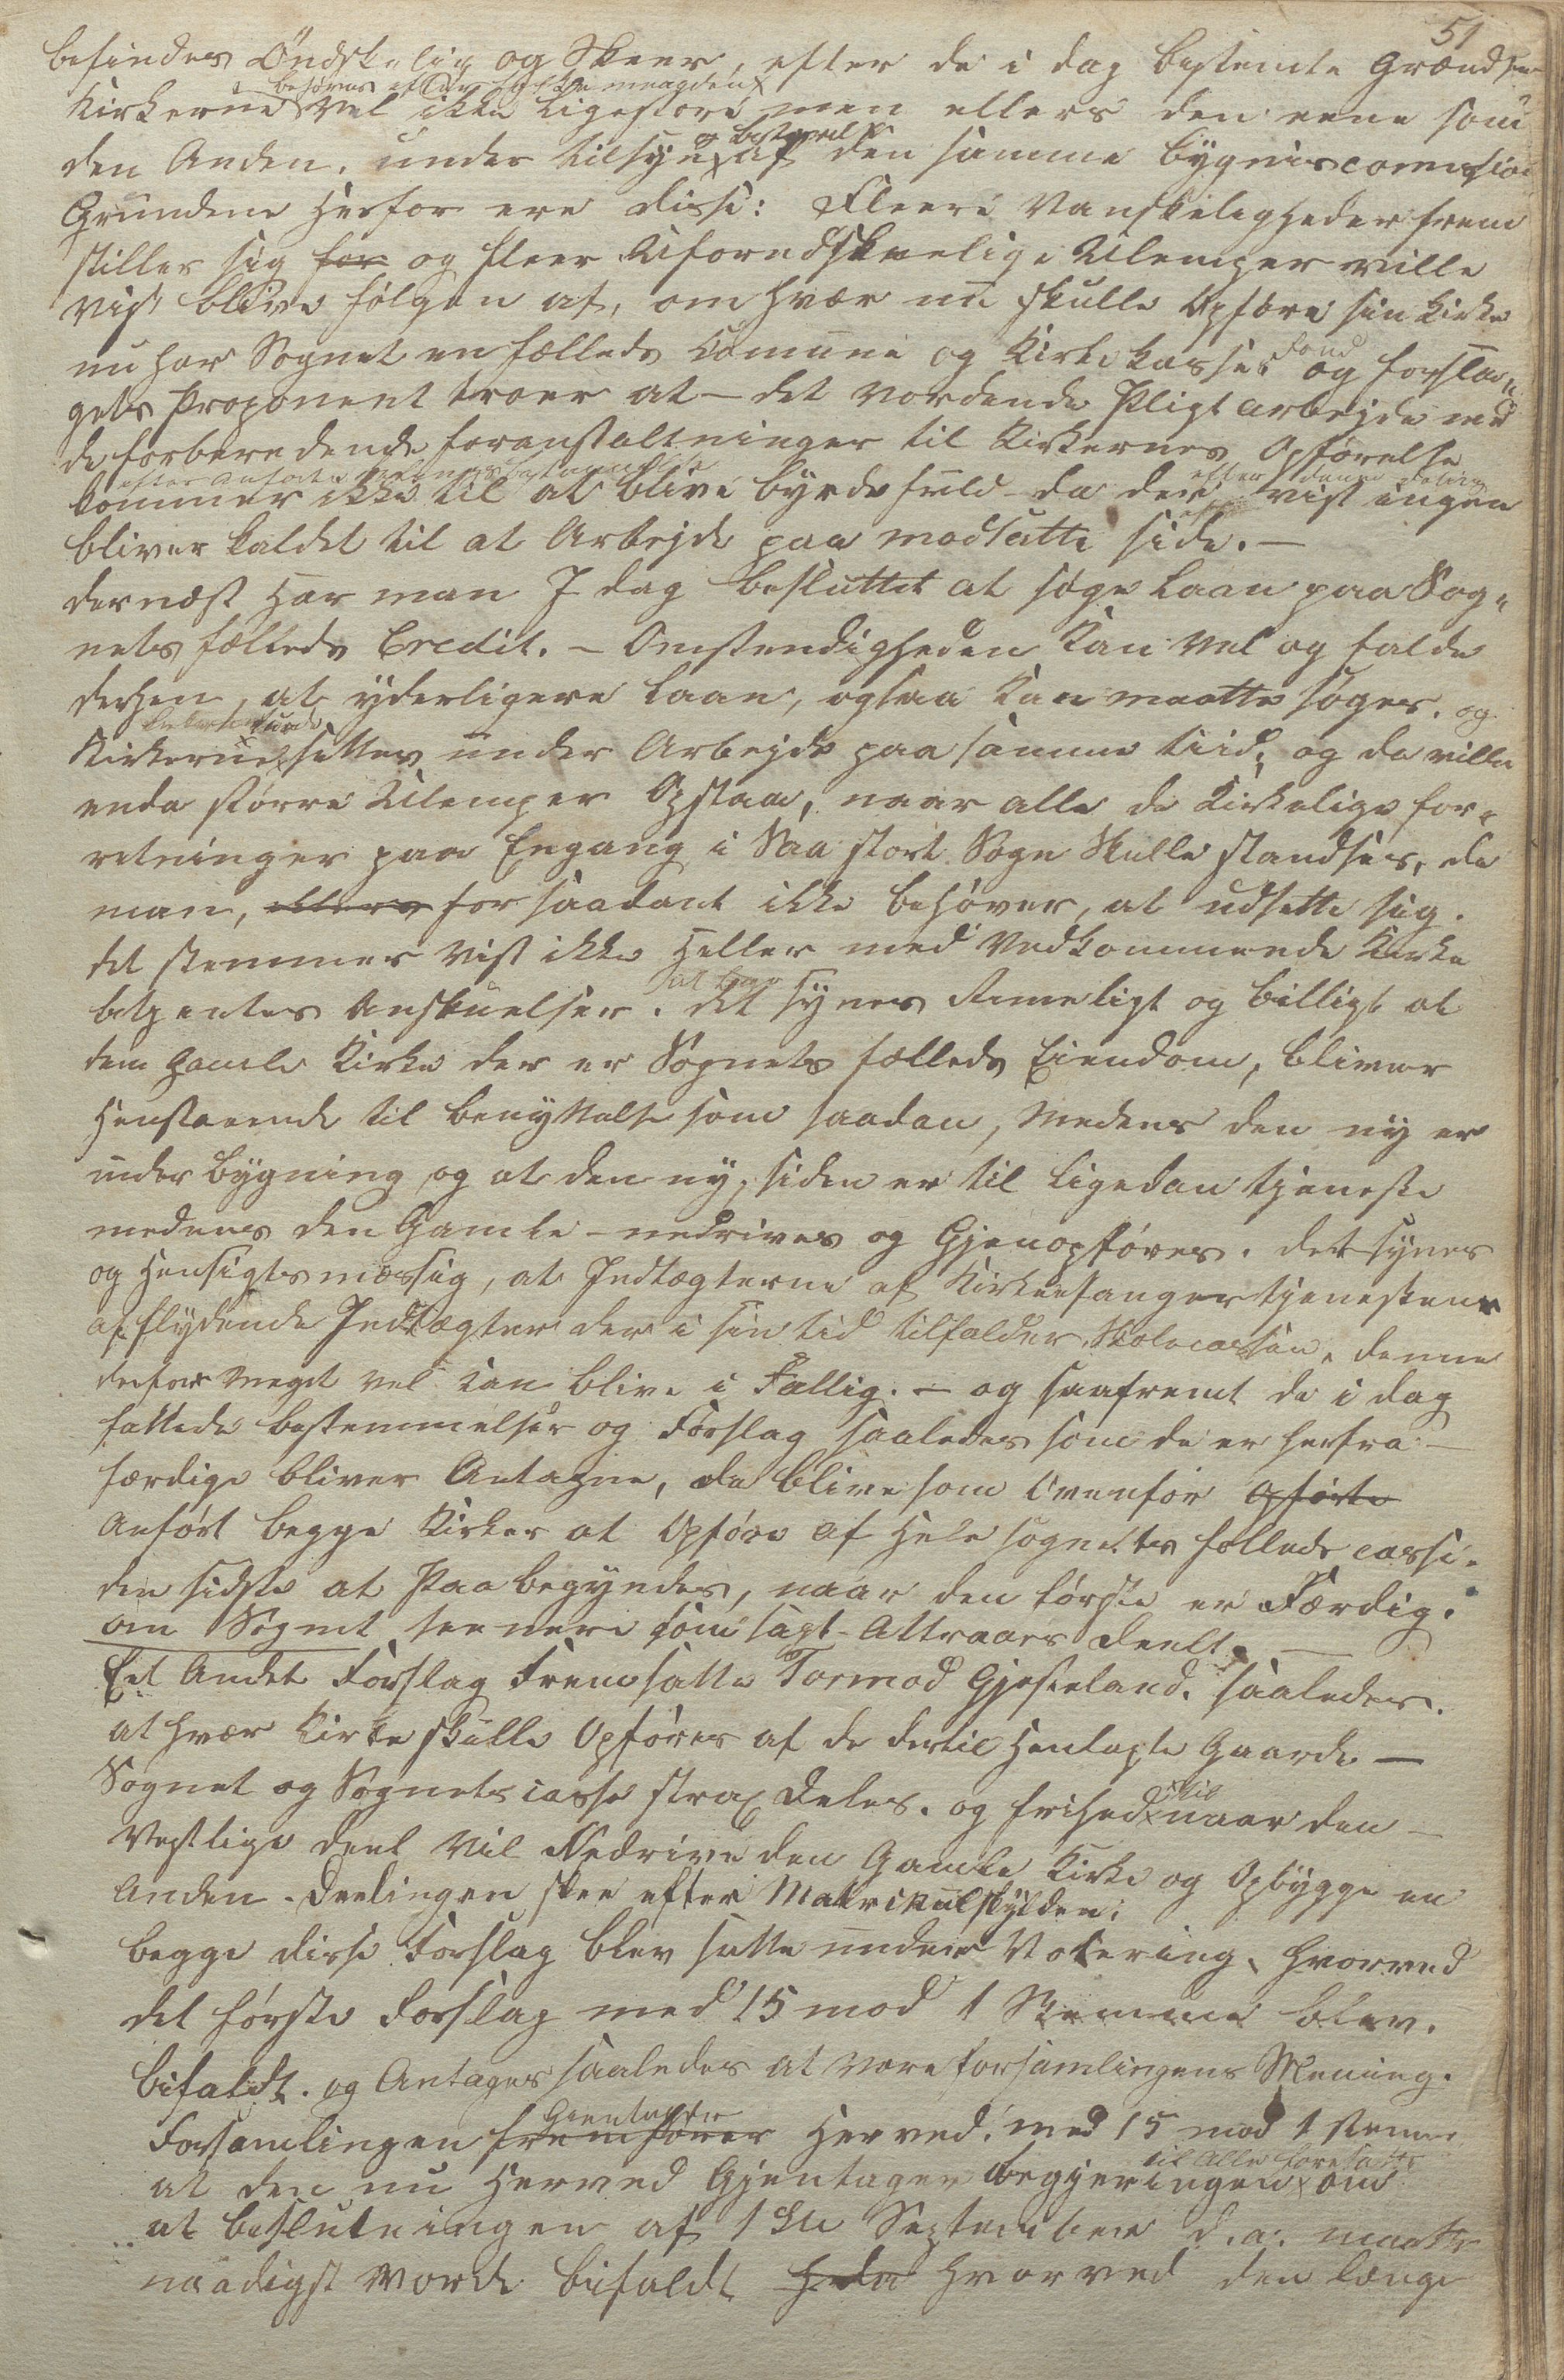 51
befindes Öndskelig og Skeer, efter de i dag bestemte Grændser
behöves efter folkemængden
Kirkerne vel ikke ligestore men ellers den eene som
og bestyrelse
den Anden, under tilsyn af den samme bygniscommission
Grundene Herfor ere disse: Fleere Vanskeligheder frem
stiller sig for og fleer Uforudskuelige Ulemper ville
vist blive følgen af, om hver nu skulle Opføre sin Kirke
nu har Sognet en fælleds Comune og Kirkekasses fond og forsla-
gets Proponent troer at – det vordende Pligtarbejde med
de forberedende foranstaltninger til Kirkernes Opförelse
kommer ikke til at blive byrdefuld da der efter denne deling vist ingen
bliver kaldet til at Arbejde paa modsatte side. –
dernæst Har man I dag besluttet at søge Laan paa Sog-
nets fælleds Credit. – Omstendigheden kan vel og falde
derhen, at yderligere Laan, ogsaa kan maatte søges. og
Kirkerne settes under Arbejde paa samme tiid; og da ville
enda større Ulemper Opstaa, naar alle de Kirkelige for-
retninger paa Engang i Saa stort Sogn Skulle standses, da
man, ellers for saadant ikke behøver, at udsette sig.
det stemmer vist ikke Heller med Vedkommende Kirke
betjentes Anskuelser. det synes Rimeligt og billigt at
den Gamle Kirke der er Sognets fælleds Eiendom, bliver
Henstaaende til benyttelse som saadan, Medens den ny er
under bygning og at den ny, siden er til ligedan tjeneste
medens den Gamle – nedrives og Gjenopføres. det synes
og Hensigtsmæssig, at Indtægterne af Kirkesangertjenesten
afflydende Indtægter der i sin tid tilfalder Skolecassen, denne
derfor meget vel kan blive i Fællig. – og saafremt de i dag
fattede bestemmelser og Forslag saaledes som de er herfra –
færdige bliver Antagne, da blive som Ovenfor Opførte
Anført begge Kirker at Opføre af Hele sognets fælleds casse
den sidste at Paabegyndes, naar den første er Færdig.
om Sognet seenere som sagt – Attraaes deelt. –
Eet Andet Forslag Fremsatte Tormod Gjesteland. saaledes.
at hver Kirke skulle Opføres af de dertil Henlagte Gaarde –
Sognet og Sognets casse strax deles. og frihed til naar den –
Vestlige deel vil Nedrive den Gamle Kirke og Opbygge en
Anden. Deelingen skee efter Matrikulskylden;
begge disse Forslag blev satte under Votering, hvorved
det første Forslag med 15 mod 1 Stemme blev.
bifaldt. og Antages saaledes at være forsamlingens Mening.
Gientager
Forsamlingen fremfører Herved. med 15 mod 1 stemme
til Alle foresatte
at den nu Herved Gjentager begjeringen om
at beslutningen af 1ste September d. a. maatte
naadigst vorde bifaldt hvorved den længe